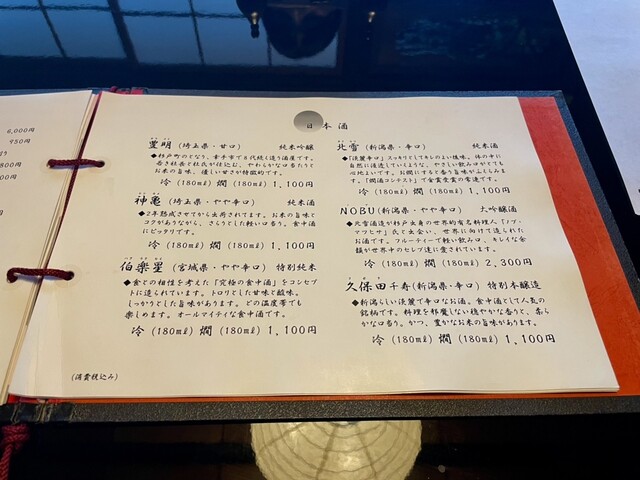 6,000円
950円
800円
日本酒
豊明 (埼玉県・甘口) 純米吟醸
◆杉戸町のとなり、幸手市で8代続く造り酒屋です。
若き社長と杜氏が仕込む、やわらかな口当たりと
お米の旨味、優しい甘さが特徴的です。
冷 (180㎖) 燗 (180㎖) 1,100円
神亀 (埼玉県・やや辛口) 純米酒
◆2年熟成させてから出荷されてます。お米の旨味と
コクがありながら、さらりとした軽い口当り。食中酒
にピッタリです。
冷 (180㎖) 燗 (180㎖) 1,100円
伯楽星 (宮城県・やや辛口) 特別純米
◆食との相性を考えた「究極の食中酒」をコンセプ
トに造られています。トロリとした甘味と酸味。
しっかりとした旨味があります。どの温度帯でも
楽しめます。オールマイティな食中酒です。
冷 (180㎖) 燗 (180㎖) 1,100円
(消費税込み)
北雪 (新潟県・辛口) 純米酒
◆「淡麗辛口」スッキリとしてキレのよい後味。体の中に
自然に浸透していくような、やさしい飲み口がとても
心地よいです。お燗にすると香り旨味がふくらみま
す。「燗酒コンテスト」で金賞受賞の常連です。
冷 (180㎖) 燗 (180㎖) 1,100円
NOBU (新潟県・やや辛口) 大吟醸酒
◆北雪酒造が和食出身の世界的有名料理人「ノブ・
マツヒサ」氏と出会い、世界に向けて造られた
お酒です。フルーティーで軽い飲み口、キレイな余
韻が世界中のセレブ達に愛されています。
冷 (180㎖) 2,300円
久保田千寿 (新潟県・やや辛口) 特別本醸造
◆新潟らしい淡麗で辛口なお酒。食中酒として人気の
銘柄です。料理を邪魔しない穏やかな香りと、柔ら
かな口当り。かつ、豊かなお米の旨味があります。
冷 (180㎖) 燗 (180㎖) 1,100円